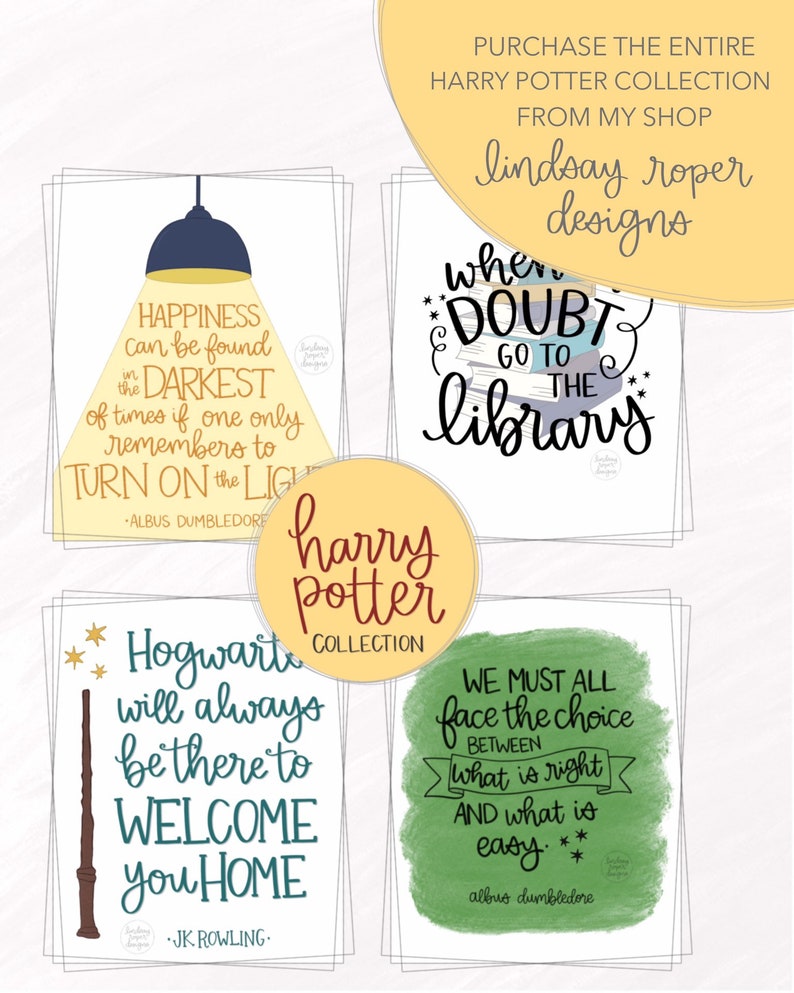 PURCHASE THE ENTIRE
HARRY POTTER COLLECTION
FROM MY SHOP
lindsay roper
designs
HAPPINESS
can be found
in the DARKEST
of times if one only
remembers to
TURN ON the LIGH
·ALBUS DUMBLEDORE
lindsay
roper
designs
when
DOUBT
GO TO
THE
library
lindsay
roper
designs
harry
potter
COLLECTION
Hogwarts
will always
be there to
WELCOME
you HOME
·JK ROWLING·
lindsay
roper
designs
WE MUST ALL
face the choice
BETWEEN
what is right
AND what is
easy.
albus dumbledore
lindsay
roper
designs